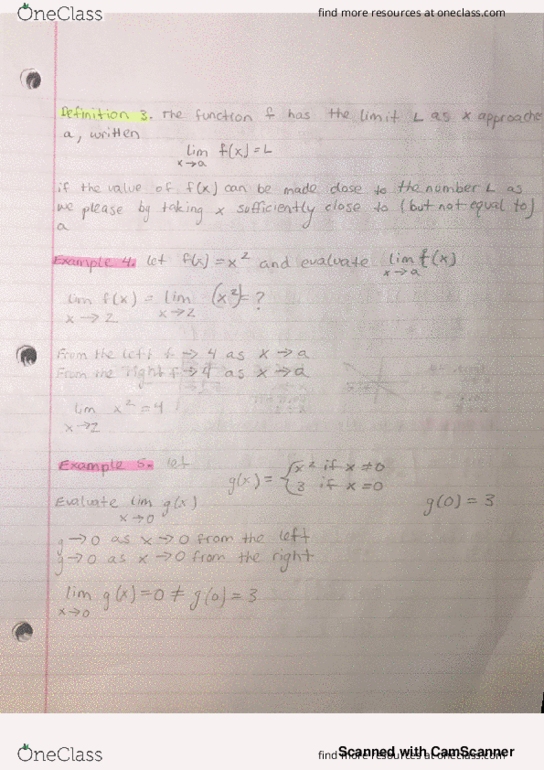 OneClass
find more resources at oneclass.com
Definition 3. The function f has the limit L as x approache
a, written
lim f(x) = L
x→a
if the value of f(x) can be made close to the number L as
we please by taking x sufficiently close to (but not equal to)
a
Example 4. let f(x) = x² and evaluate lim f(x)
x→a
lim f(x) = lim (x²) = ?
x→2 x→2
From the left f → 4 as x → a
From the right f → 4 as x → a
lim x² = 4
x→2
Example 5. let
g(x) = { x² if x ≠ 0
3 if x = 0
Evaluate lim g(x) g(0) = 3
x→0
g → 0 as x → 0 from the left
g → 0 as x → 0 from the right
lim g(x) = 0 ≠ g(0) = 3
x→0
OneClass
find more resources at oneclass.com
Scanned with CamScanner